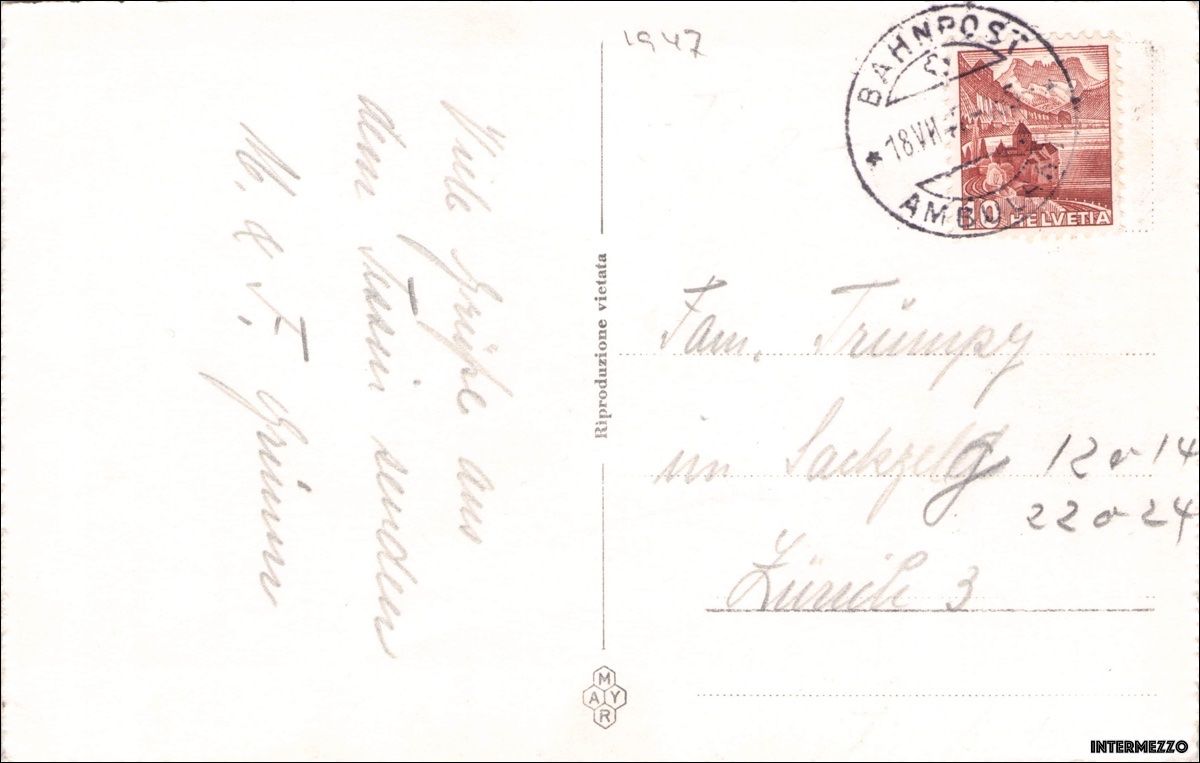 Viele Grüße aus
dem Tessin senden
M. & F. Grimm
Riproduzione vietata
MAYR
1947
BAHNPOST
18 VII
AMBULANT
10 HELVETIA
Fam. Trümpy
im 12 o 14
22 o 24
Zürich 3
INTERMEZZO